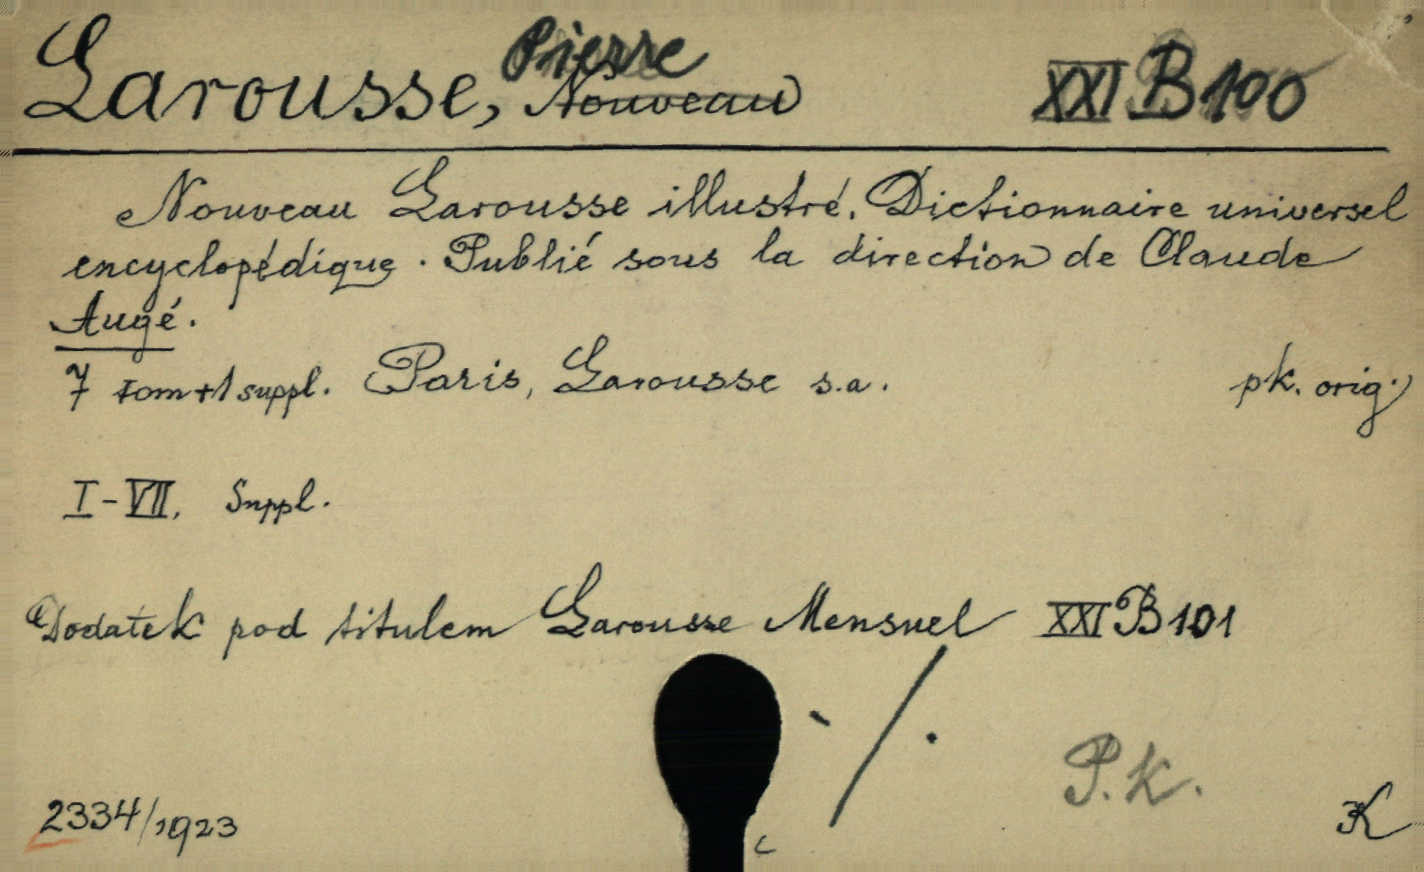 Larousse, Pierre Nouveau XXI B 100
Nouveau Larousse illustré. Dictionnaire universel
encyclopédique. Publié sous la direction de Claude
Augé.
7 tom + 1 suppl. Paris, Larousse s.a. pk. orig.
I-VII, Suppl.
Dodatek pod titulem Larousse Mensuel XXI B 101
P.K.
2334/1923 K